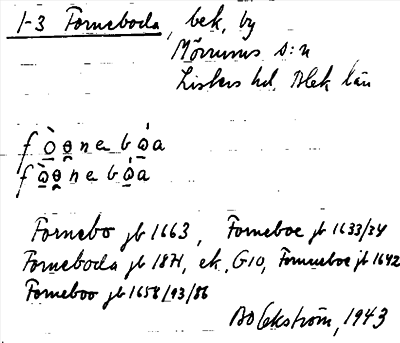 1-3 Forneboda, bek, by
Mörrums s:n
Listers hd. Blek län
f ò̱ ɵ̱ n e b ώ̱ a
f ὼ̱ ɵ̱ n e b ώ̱ a
Fornebo jb 1663, Forneboe jb 1633/34
Forneboda jb 1871, ek, G10, Fornneboe jb 1642
Forneboo jb 1658/93/86
Bo Ekström, 1943